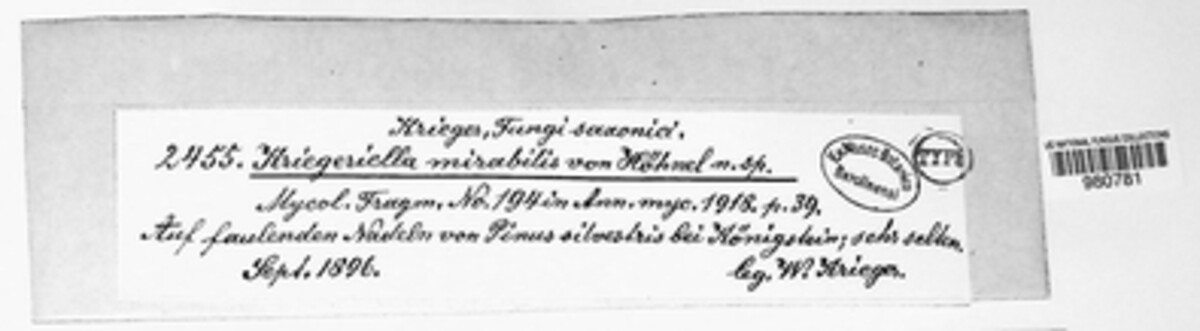 Krieger, Fungi saxonici.
2455. Kriegeriella mirabilis von Höhnel n. sp.
Mycol. Fragm. No. 194 in Ann. myc. 1918. p. 39.
Auf faulenden Nadeln von Pinus silvestris bei Königstein; sehr selten.
Sept. 1896.
leg. W. Krieger.
Ex Museo Botanico
Berolinensi
TYPE
US NATIONAL FUNGUS COLLECTIONS
980781